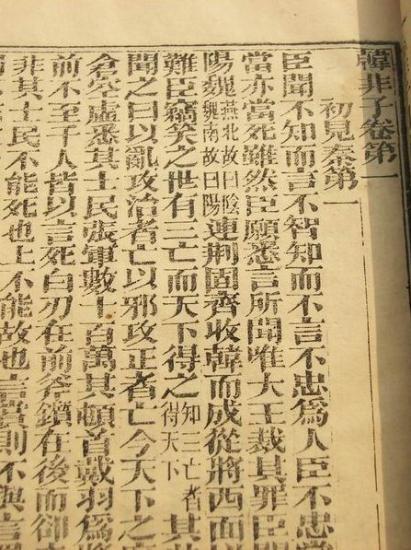 韓非子卷第一
初見秦第一
臣聞不知而言不智知而不言不忠爲人臣不忠當
當亦當死雖然臣願悉言所聞唯大王裁其罪臣聞
陽魏燕北故曰陰魏南故曰陽連荆固齊收韓而成從將西面
難臣竊笑之世有三亡而天下得之知三亡者得天下其
聞之曰以亂攻治者亡以邪攻正者亡今天下之
倉空虛悉其士民張軍數十百萬其頓首戴羽爲將
前不至千人皆以言死白刃在前斧鑕在後而卻
非其士民不能死也上不能故也言賞則不與言